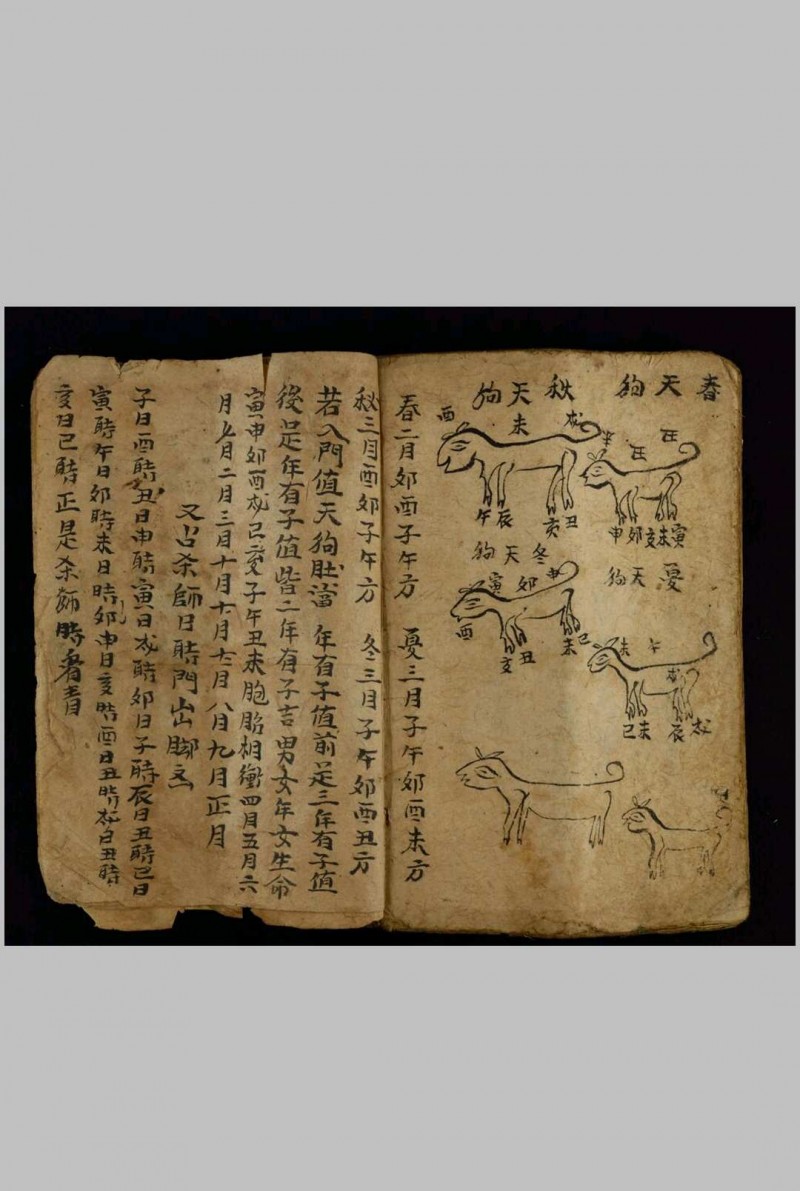 春天狗
秋天狗
未
酉
戌
午辰
亥丑
申卯亥未寅
冬天狗
寅卯申
酉
亥丑
未巳
憂天狗
未午
戌
巳未
辰戌
春二月卯酉子午方 憂三月子午卯酉未方
秋三月酉卯子午方 冬三月子午卯酉丑方
若入門值天狗肚當年有子值前足三年有子值
後足年有子值皆二年有子吉男女年女生命
寅申卯酉戌巳亥子午丑未胞胎相衝四月五月六
月二月三月十月十月七月八月九月正月
又占杀師日時門出脚立
子日酉時丑日申時寅日戌時卯日子時辰日丑時巳日
寅時午日卯時未日時卯申日亥時酉日丑時戌日丑時
亥日巳時正是杀師時者青